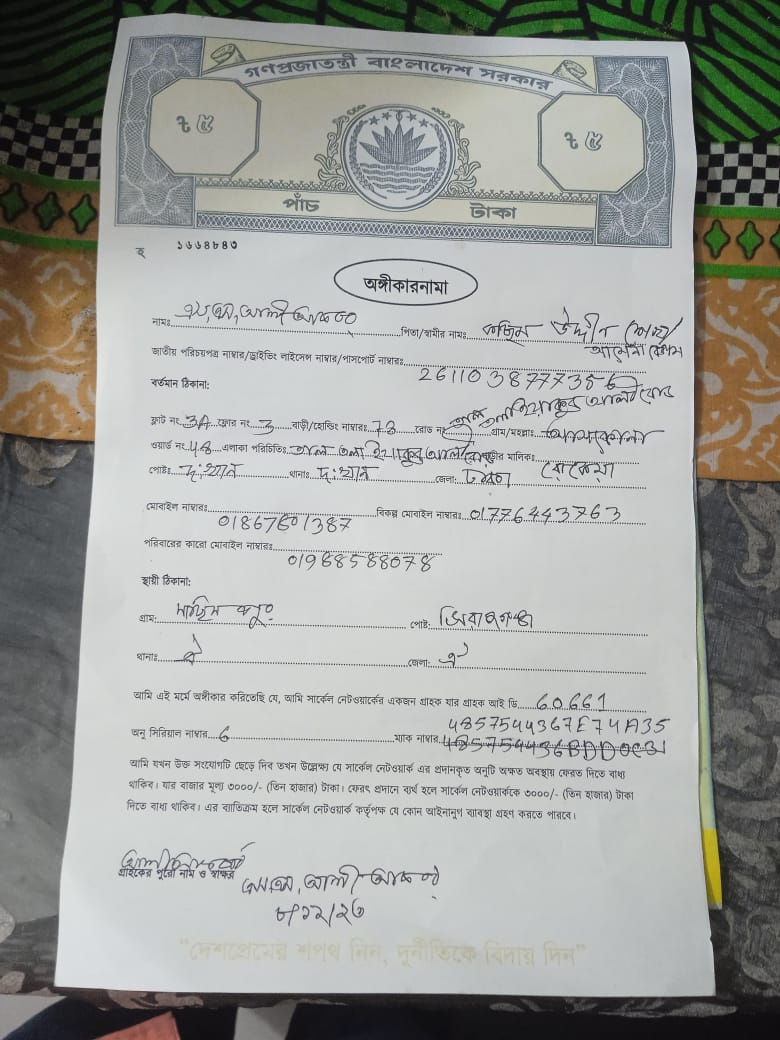 গণপ্রজাতন্ত্রী বাংলাদেশ সরকার
৳ ৫
৳ ৫
পাঁচ টাকা
১৬৬৪৮৪৩
অঙ্গীকারনামা
নামঃ এম, এম, আলী আকবর পিতা/স্বামীর নামঃ উদ্দীন
জাতীয় পরিচয়পত্র নাম্বার/ড্রাইভিং লাইসেন্স নাম্বার/পাসপোর্ট নাম্বারঃ
বর্তমান ঠিকানা:
ফ্লাট নং 3A ফ্লোর নং 3 বাড়ী/হোল্ডিং নাম্বারঃ 73 রোড নং গ্রাম/মহল্লাঃ
ওয়ার্ড নং 48 এলাকা পরিচিতিঃ মালিকঃ রোকেয়া
পোষ্টঃ দঃখান থানাঃ দঃখান জেলা: ঢাকা
মোবাইল নাম্বারঃ 01867601387 বিকল্প মোবাইল নাম্বারঃ 01776443763
পরিবারের কারো মোবাইল নাম্বারঃ 01988588078
স্থায়ী ঠিকানা:
গ্রাম: পোষ্ট: সিরাজগঞ্জ
থানাঃ ঐ জেলা: ঐ
আমি এই মর্মে অঙ্গীকার করিতেছি যে, আমি সার্কেল নেটওয়ার্কের একজন গ্রাহক যার গ্রাহক আই ডি 60661
4857544367E74A35
অনু সিরিয়াল নাম্বার 6 ম্যাক নাম্বার
আমি যখন উক্ত সংযোগটি ছেড়ে দিব তখন উল্লেক্ষ্য যে সার্কেল নেটওয়ার্ক এর প্রদানকৃত অনুটি অক্ষত অবস্থায় ফেরত দিতে বাধ্য
থাকিব। যার বাজার মূল্য ৩০০০/- (তিন হাজার) টাকা। ফেরৎ প্রদানে ব্যর্থ হলে সার্কেল নেটওয়ার্ককে ৩০০০/- (তিন হাজার) টাকা
দিতে বাধ্য থাকিব। এর ব্যাতিক্রম হলে সার্কেল নেটওয়ার্ক কর্তৃপক্ষ যে কোন আইনানুগ ব্যাবস্থা গ্রহণ করতে পারবে।
গ্রাহকের পুরো নাম ও স্বাক্ষর
এম, এম, আলী আকবর
"দেশপ্রেমের শপথ নিন, দুর্নীতিকে বিদায় দিন"